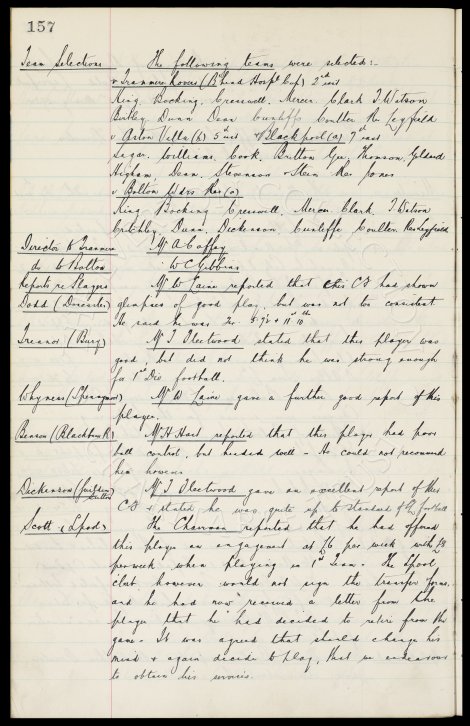 157
Team Selections The following teams were selected:-
v Tranmere Rovers (B'head Hospl Cup) 2nd inst
King Bocking Cresswell. Mercer Clark T. Watson
Bentley Dunn Dean Cunliffe Coulter Res Leyfield
v Aston Villa (h) 5th inst v Blackpool (a) 7th inst
Sagar. Williams. Cook. Britton Gee, Thomson, Geldard
Higham, Dean. Stevenson Stein Res Jones
v Bolton Wdrs Res (a)
King Bocking Cresswell. Mercer Clark. T. Watson
Critchley. Dunn, Dickenson Cunliffe Coulter. Res Leyfield
Director to Tranmere Mr A Coffey
do to Bolton W C Gibbins
Reports re Players Mr W Laine reported that this CF had shown
Dodd (Doncaster) glimpses of good play, but was not too consistent
He said he was 5 9½ + 11st 10lb
(Bury) Mr J Fleetwood stated that this player was
good, but did not think he was strong enough
for 1st Div. football.
Whyness (Spennymoor) Mr W Laine gave a further good report of this
player.
Benson (Blackburn) Mr H Hart reported that this player had poor
ball control, but headed well - He could not recommend
him however
Dickenson Mr J Fleetwood gave an excellent report of this
CF + stated he was quite up to standard of football
Scott (Lpool) The Chairman reported that he had offered
this player an engagement at £6 per week with £8
per week when playing in 1st Team. The Lpool
club however would not sign the transfer form,
and he had now received a letter from the
player that he had decided to retire from the
game - It was agreed that should change his
mind + again decide to play, that we endeavour
to obtain his services.